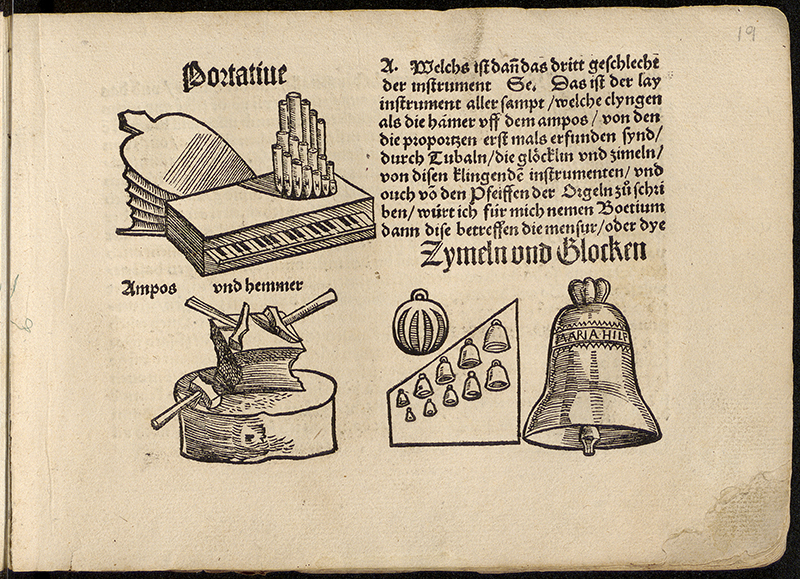 19
Portatiue
A. Welchs ist dañ das dritt geschlecht
der instrument Se. Das ist der lay
instrument aller sampt / welche clyngen
als die hämer vff dem ampos / von den
die proportzen erst mals erfunden synd /
durch Tubaln / die glöcklin vnd zimeln /
von disen klingendē instrumenten / vnd
ouch vō den Pfeiffen der Orgeln zů schri
ben / würt ich für mich nemen Boetium
dann dise betreffen die mensur / oder dye
Zymeln vnd Glocken
Ampos vnd hemmer
MARIA·HILF